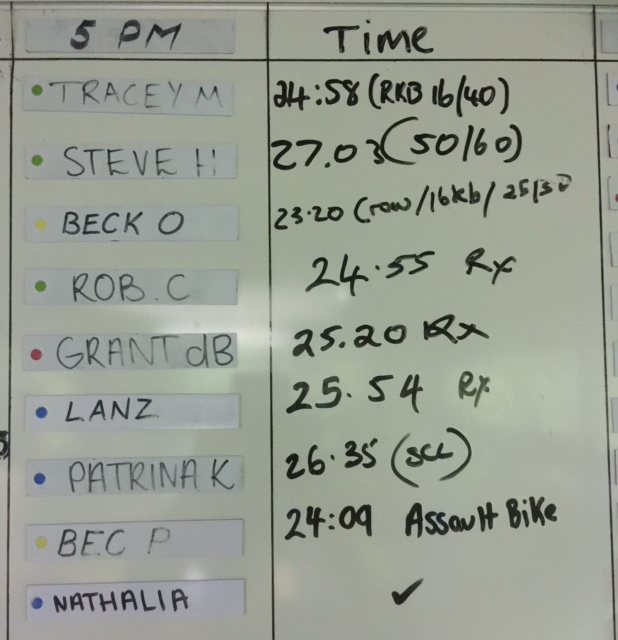 5 PM Time
TRACEY M 24:58 (RKB 16/40)
STEVE H 27.03 (50/60)
BECK O 23.20 (row/16kb/25/30
ROB. C 24.55 Rx
GRANT dB 25.20 Rx
LANZ 25.54 Rx
PATRINA K 26.35 (SCL)
BEC P 24:09 Assault Bike
NATHALIA ✓